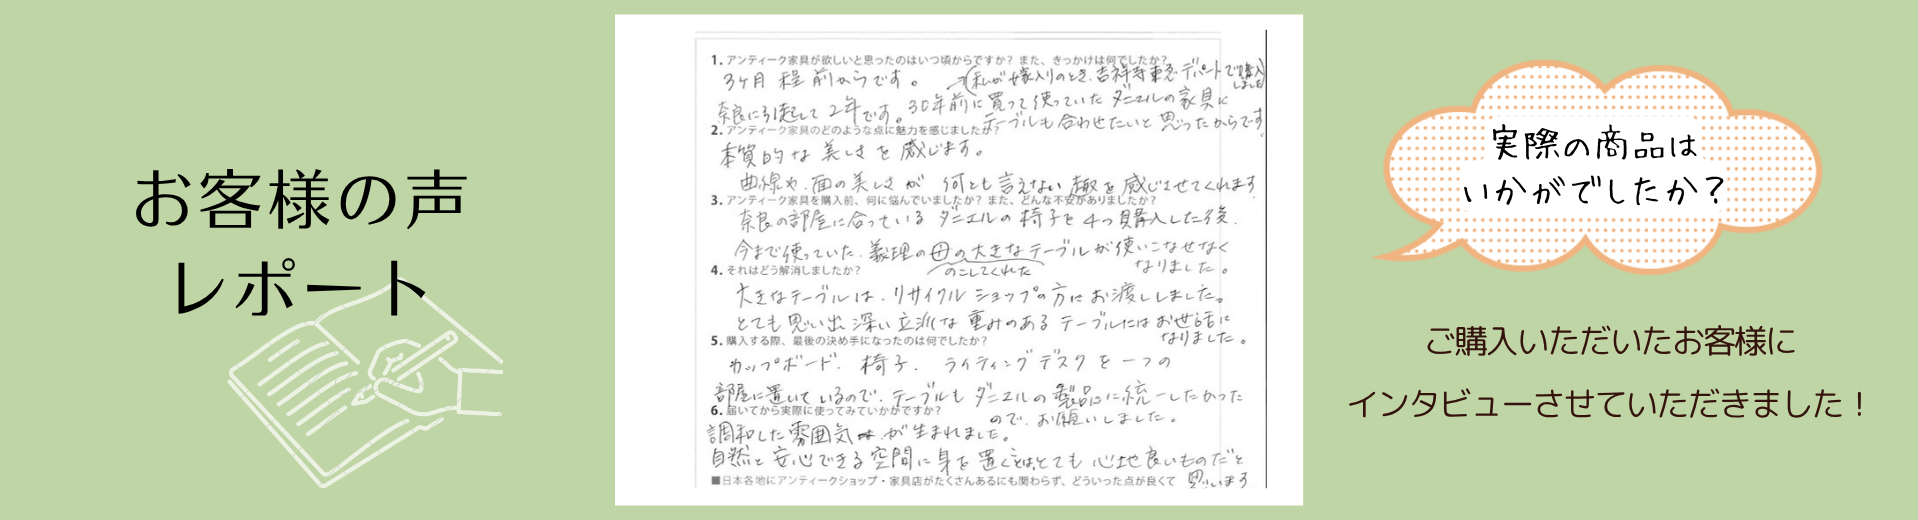 お客様の声
レポート
1. アンティーク家具が欲しいと思ったのはいつ頃からですか？また、きっかけは何でしたか？
3ヶ月程前からです。
→(私が嫁入りのとき、吉祥寺東急デパートで購入しました)
奈良に引越して2年です。30年前に買って使っていたダニエルの家具に
テーブルも合わせたいと思ったからです。
2. アンティーク家具のどのような点に魅力を感じましたか？
本質的な美しさを感じます。
曲線や、面の美しさが何とも言えない趣を感じさせてくれます
3. アンティーク家具を購入前、何に悩んでいましたか？また、どんな不安がありましたか？
奈良の部屋に合っているダニエルの椅子を4つ購入した後、
今まで使っていた、義理の母の大きなテーブルが使いこなせなく
のこしてくれた
なりました。
4. それはどう解消しましたか？
大きなテーブルは、リサイクルショップの方にお渡ししました。
とても思い出深い立派な重みのあるテーブルにはお世話に
なりました。
5. 購入する際、最後の決め手になったのは何でしたか？
カップボード、椅子、ライティングデスクを一つの
部屋に置いているので、テーブルもダニエルの製品に統一したかった
ので、お願いしました。
6. 届いてから実際に使ってみていかがですか？
調和した雰囲気が生まれました。
自然と安心できる空間に身を置くことは、とても心地良いものだと
思います
■日本各地にアンティークショップ・家具店がたくさんあるにも関わらず、どういった点が良くて
実際の商品は
いかがでしたか？
ご購入いただいたお客様に
インタビューさせていただきました！